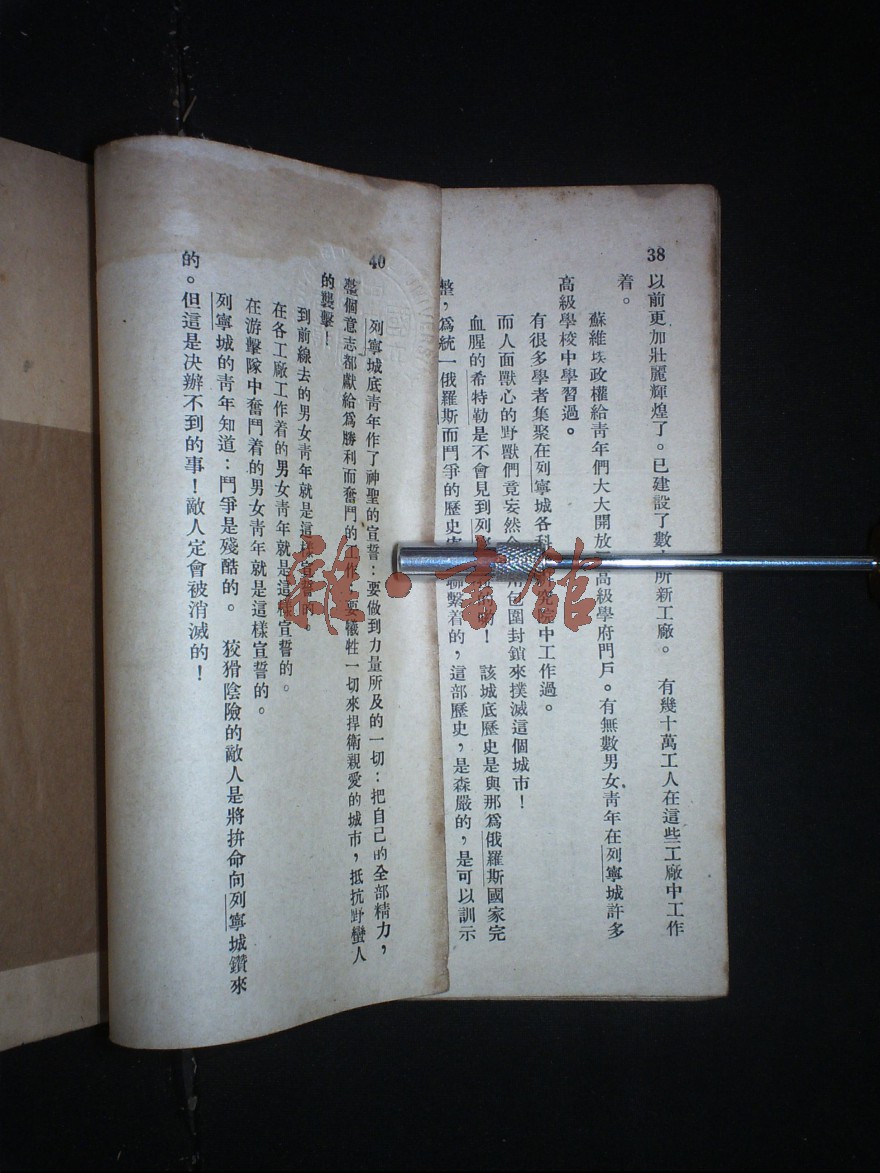 38
以前更加壯麗輝煌了。已建設了數 所新工廠。 有幾十萬工人在這些工廠中工作
着。
蘇維埃政權給靑年們大大開放 高級學府門戶。有無數男女靑年在列寧城許多
高級學校中學習過。
有很多學者集聚在列寧城各科 究院中工作過。
而人面獸心的野獸們竟妄然 用包圍封鎖來撲滅這個城市!
血腥的希特勒是不會見到列 的! 該城底歷史是與那爲俄羅斯國家完
整,爲統一俄羅斯而鬥爭的歷史 聯繫着的,這部歷史,是森嚴的,是可以訓示
40
列寧城底靑年作了神聖的宣誓:要做到力量所及的一切:把自己的全部精力,
整個意志都獻給爲勝利而奮鬥的工作;要犧牲一切來捍衛親愛的城市,抵抗野蠻人
的襲擊!
到前線去的男女靑年就是這樣宣誓的。
在各工廠工作着的男女靑年就是這樣宣誓的。
在游擊隊中奮鬥着的男女靑年就是這樣宣誓的。
列寧城的靑年知道:鬥爭是殘酷的。 狡猾陰險的敵人是將拚命向列寧城鑽來
的。但這是决辦不到的事!敵人定會被消滅的!
雜·書館